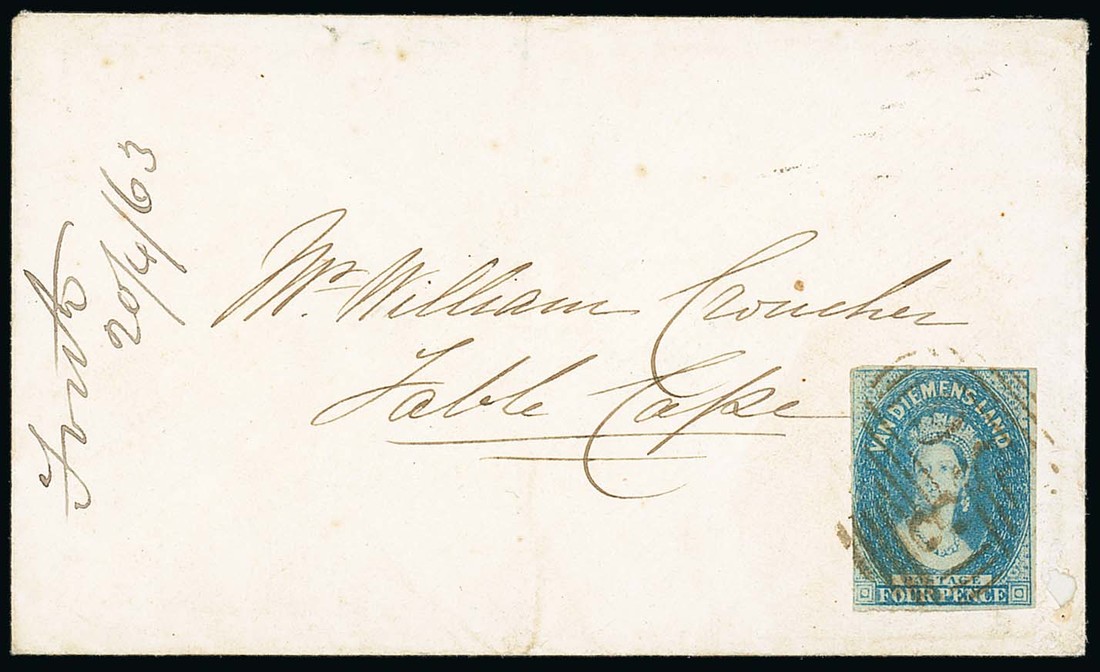 Forth
20/4/63
Mr William Croucher
Table Cape
VAN DIEMENS LAND
POSTAGE
FOUR PENCE